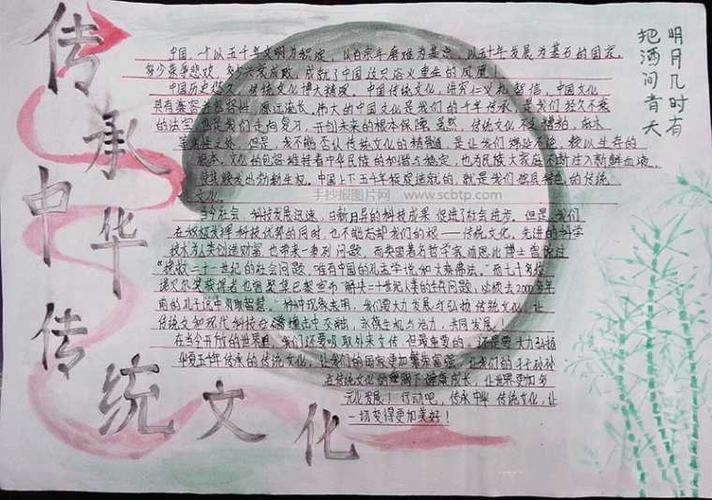 传承中华传统文化
明月几时有
把酒问青天
中国,一个以五千年文明为积淀,以百余年磨难为基点,以五十年发展为基石的国家。
多少哀辛悲欢,多少兴衰成败,成就了中国这只浴火重生的凤凰!
中国历史悠久,传统文化博大精深。中国传统文化,讲究仁义礼智信,中国文化
具有兼容并蓄
源远流长,伟大的中国文化是我们的千年传承,是我们经久不衰
的法宝,也是我们走向复兴,开创未来的根本保障。虽然,传统文化不乏糟粕,麻木
但是,我不能否认传统文化的精髓,是让我们赖以生存的
根本,文化的包容维持着中华民族的和谐与稳定,也为民族大家庭不断注入新鲜血液,
中国上下五千年积淀造就的,就是我们信具特色的传统
文化。
手抄报图片网 www.scbtp.com
当今社会,科技发展迅速,日新月异的科技成果促进了社会进步,但是,我们
在积极发挥科技优势的同时,也不能忘却我们的根——传统文化。先进的科学
技术为人类创造财富,也带来一系列问题,而英国著名哲学家汤恩比博士曾说过
“挽救二十一世纪的社会问题,唯有中国的孔孟学说和大乘佛法。”而七十多位
诺贝尔奖获得者也曾聚集巴黎宣布“解决二十一世纪人类的生存问题,必须去2000多年
前的孔子这中汲取智慧。”种种现象表明,我们要大力发展与弘扬传统文化,让
传统文和现代科技在之撞击中交融,永葆生机与活力,共同发展!
在当今开放的世界里,我们还要吸取外来文,但最重要的,还是要大力弘扬
华夏五千年传承的传统文化,让我们的国家更加繁荣富强,让我们的子孙孙
在传统文化的熏陶下健康成长,让世界更加多
元化发展!行动吧,传承中华传统文化,让
一切变得更加美好!